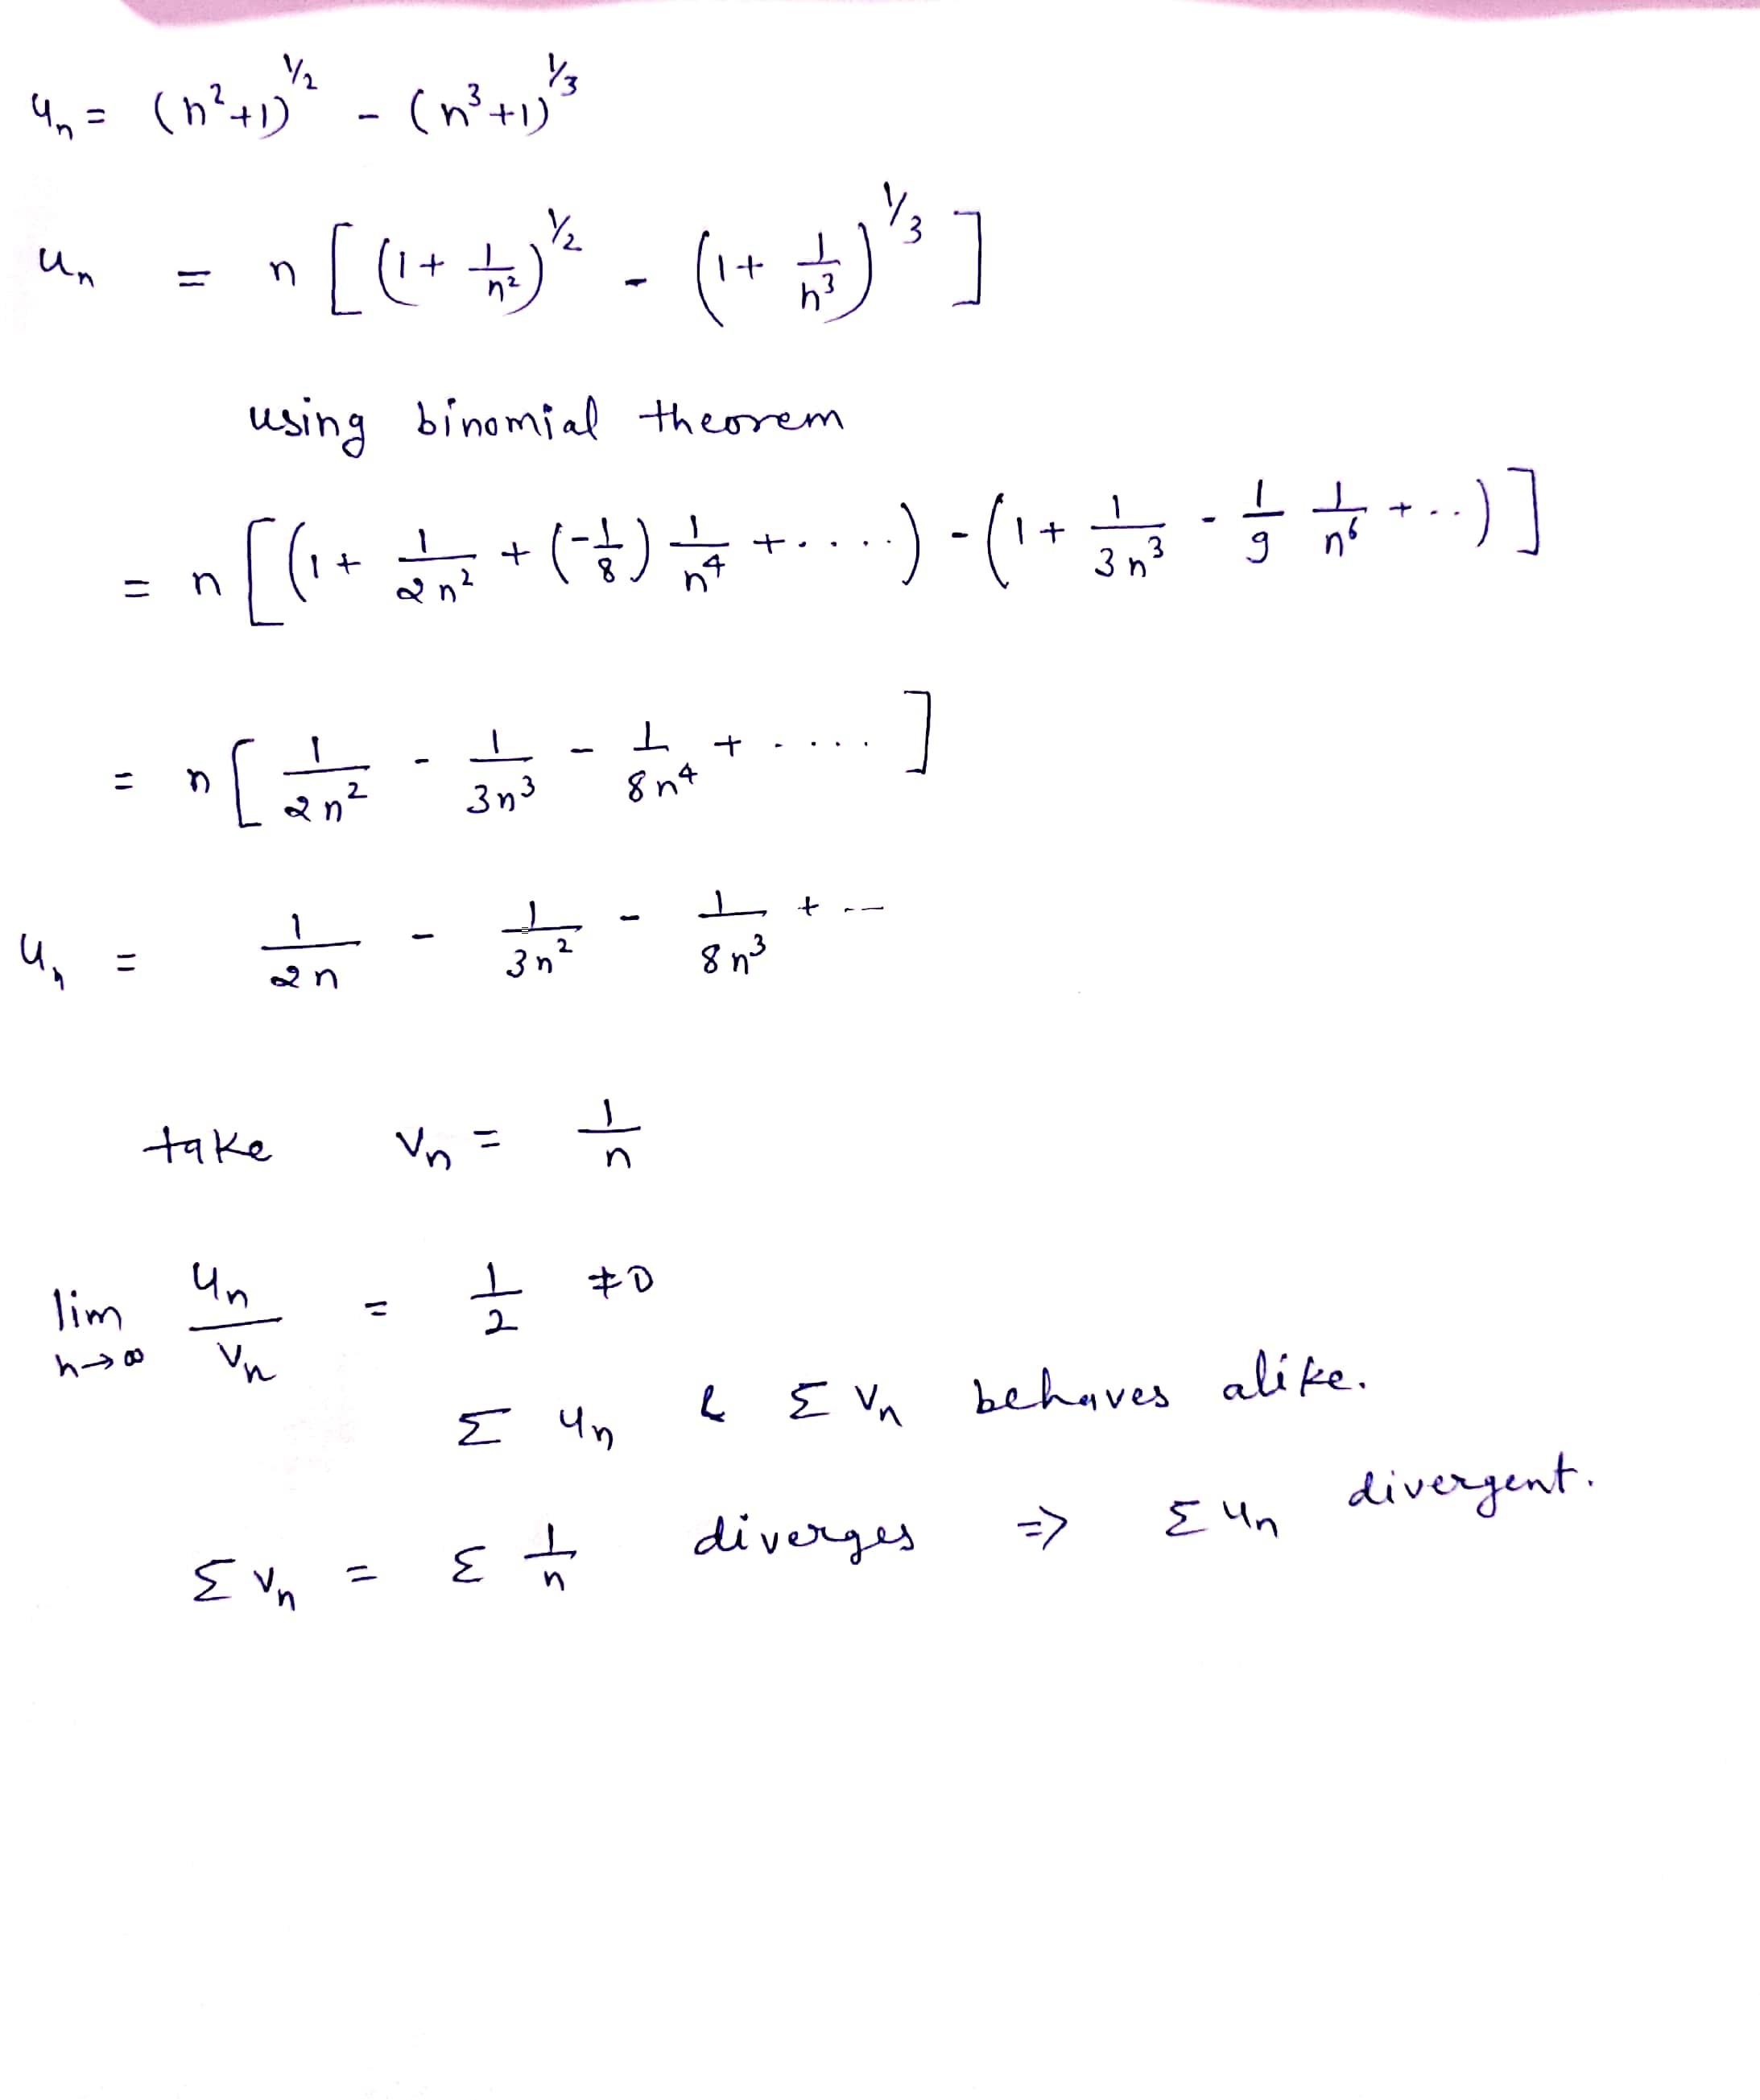 u_n = (n²+1)^{1/2} - (n³+1)^{1/3}
u_n = n [ (1 + 1/n²)^{1/2} - (1 + 1/n³)^{1/3} ]
using binomial theorem
= n [ (1 + 1/2n² + (-1/8) 1/n⁴ + .....) - (1 + 1/3n³ - 1/9 1/n⁶ + ..) ]
= n [ 1/2n² - 1/3n³ - 1/8n⁴ + ..... ]
u_n = 1/2n - 1/3n² - 1/8n³ + --
take v_n = 1/n
lim_{n→∞} u_n/v_n = 1/2 ≠ 0
Σ u_n & Σ v_n behaves alike.
Σ v_n = Σ 1/n diverges => Σ u_n divergent.